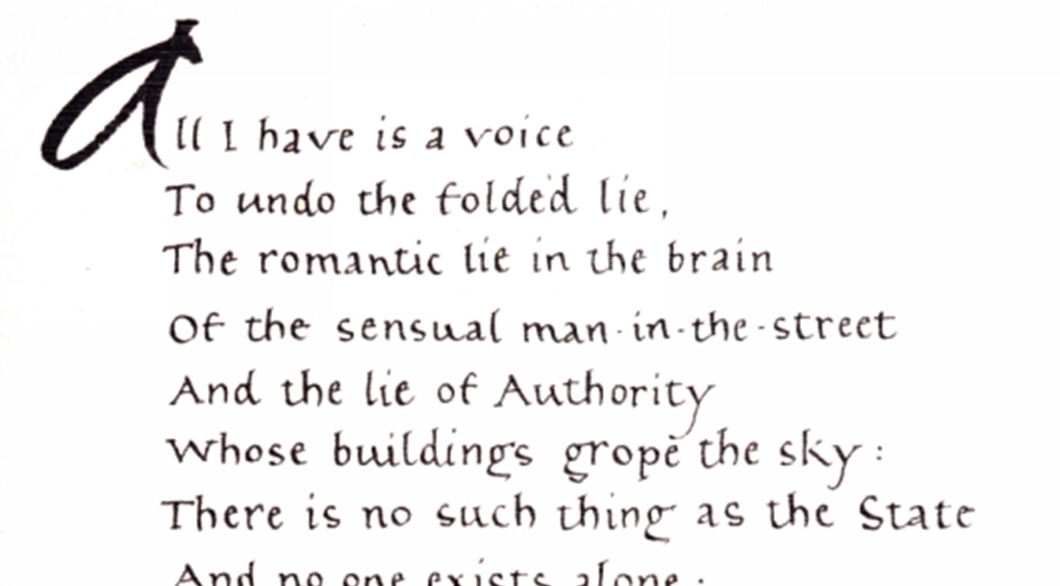 All I have is a voice
To undo the folded lie,
The romantic lie in the brain
Of the sensual man-in-the-street
And the lie of Authority
Whose buildings grope the sky:
There is no such thing as the State
And no one exists alone;